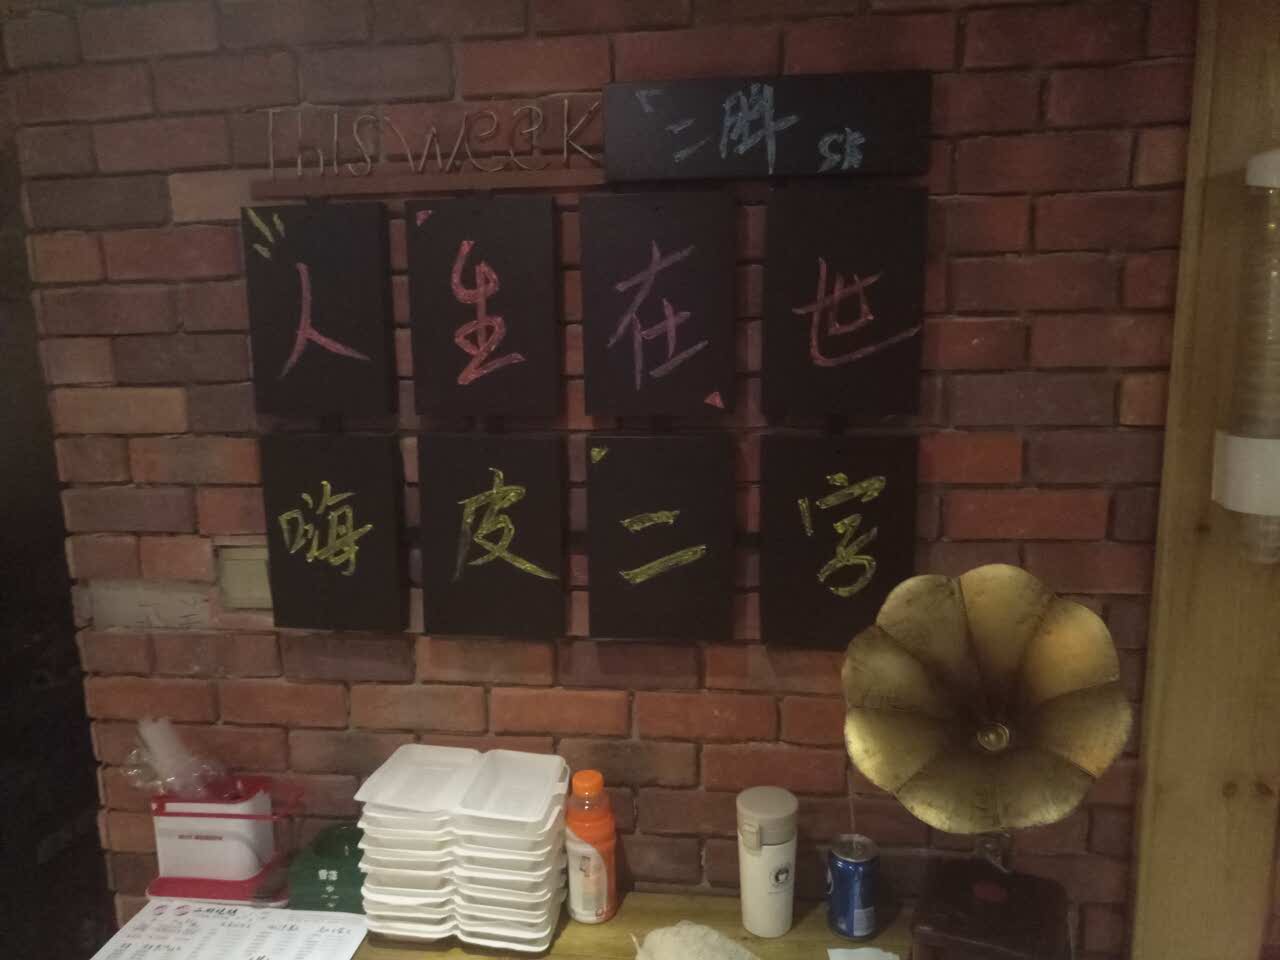 THIS WEEK
二胖
人生在世
嗨皮二字